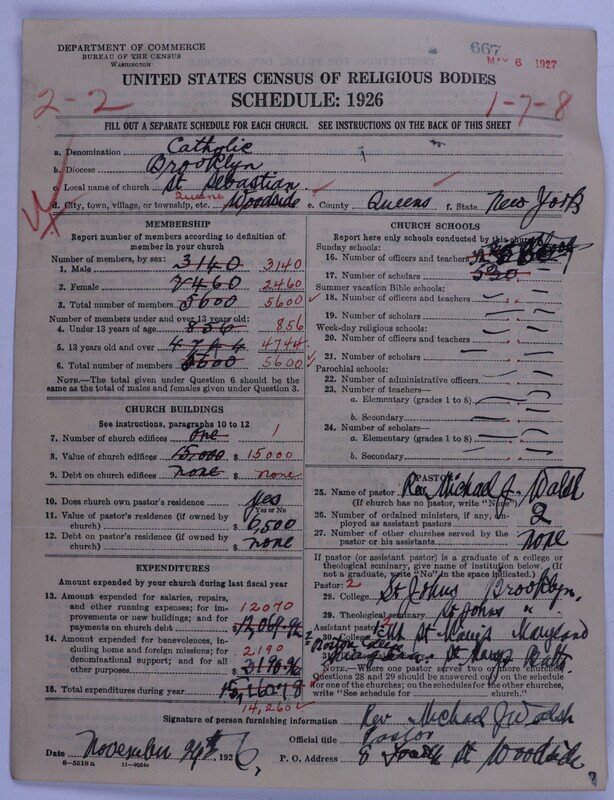 667
MAY 6 1927
DEPARTMENT OF COMMERCE
BUREAU OF THE CENSUS
WASHINGTON
UNITED STATES CENSUS OF RELIGIOUS BODIES
SCHEDULE: 1926
2-2
1-7-8
FILL OUT A SEPARATE SCHEDULE FOR EACH CHURCH. SEE INSTRUCTIONS ON THE BACK OF THIS SHEET
a. Denomination Catholic
b. Diocese Brooklyn
c. Local name of church St Sebastian
d. City, town, village, or township, etc. Queens Woodside e. County Queens f. State New York
MEMBERSHIP
Report number of members according to definition of
member in your church
Number of members, by sex:
1. Male 3140 3140
2. Female 2460 2460
3. Total number of members 5600 5600
Number of members under and over 13 years old:
4. Under 13 years of age 856 856
5. 13 years old and over 4744 4744
6. Total number of members 5600 5600
NOTE.—The total given under Question 6 should be
the same as the total of males and females given under Question 3.
CHURCH BUILDINGS
See instructions, paragraphs 10 to 12
7. Number of church edifices one 1
8. Value of church edifices $ 15,000 $ 15000
9. Debt on church edifices $ none $ none
10. Does church own pastor's residence? yes
Yes or No
11. Value of pastor's residence (if owned by
church) $ 6,500
12. Debt on pastor's residence (if owned by
church) $ none
EXPENDITURES
Amount expended by your church during last fiscal year
13. Amount expended for salaries, repairs,
and other running expenses; for im-
provements or new buildings; and for
payments on church debt 12070
$ 12,069.92
14. Amount expended for benevolences, in-
cluding home and foreign missions; for
denominational support; and for all
other purposes 2190
$
15. Total expenditures during year $
14,260
CHURCH SCHOOLS
Report here only schools conducted by this church
Sunday schools:
16. Number of officers and teachers
17. Number of scholars 530
Summer vacation Bible schools:
18. Number of officers and teachers
19. Number of scholars
Week-day religious schools:
20. Number of officers and teachers
21. Number of scholars
Parochial schools:
22. Number of administrative officers
23. Number of teachers—
a. Elementary (grades 1 to 8)
b. Secondary
24. Number of scholars—
a. Elementary (grades 1 to 8)
b. Secondary
PASTOR
25. Name of pastor Rev. Michael J. Walsh
(If church has no pastor, write "None")
26. Number of ordained ministers, if any, em-
ployed as assistant pastors 2
27. Number of other churches served by the
pastor or his assistants none
If pastor (or assistant pastor) is a graduate of a college or
theological seminary, give name of institution below. (If
not a graduate, write "No" in the space indicated.)
Pastor: 2
28. College St Johns Brooklyn.
29. Theological seminary St Johns "
Assistant pastor: 2
30. College St Mary's Maryland
Boston College
31. St Mary's
NOTE.—Where one pastor serves two or more churches,
Questions 28 and 29 should be answered only on the schedule
for one of the churches; on the schedules for the other churches,
write "See schedule for church."
Signature of person furnishing information Rev Michael J Walsh
Official title Pastor
Date November 24th, 1926. P. O. Address St Woodside
8—5518 a 11—9054
7